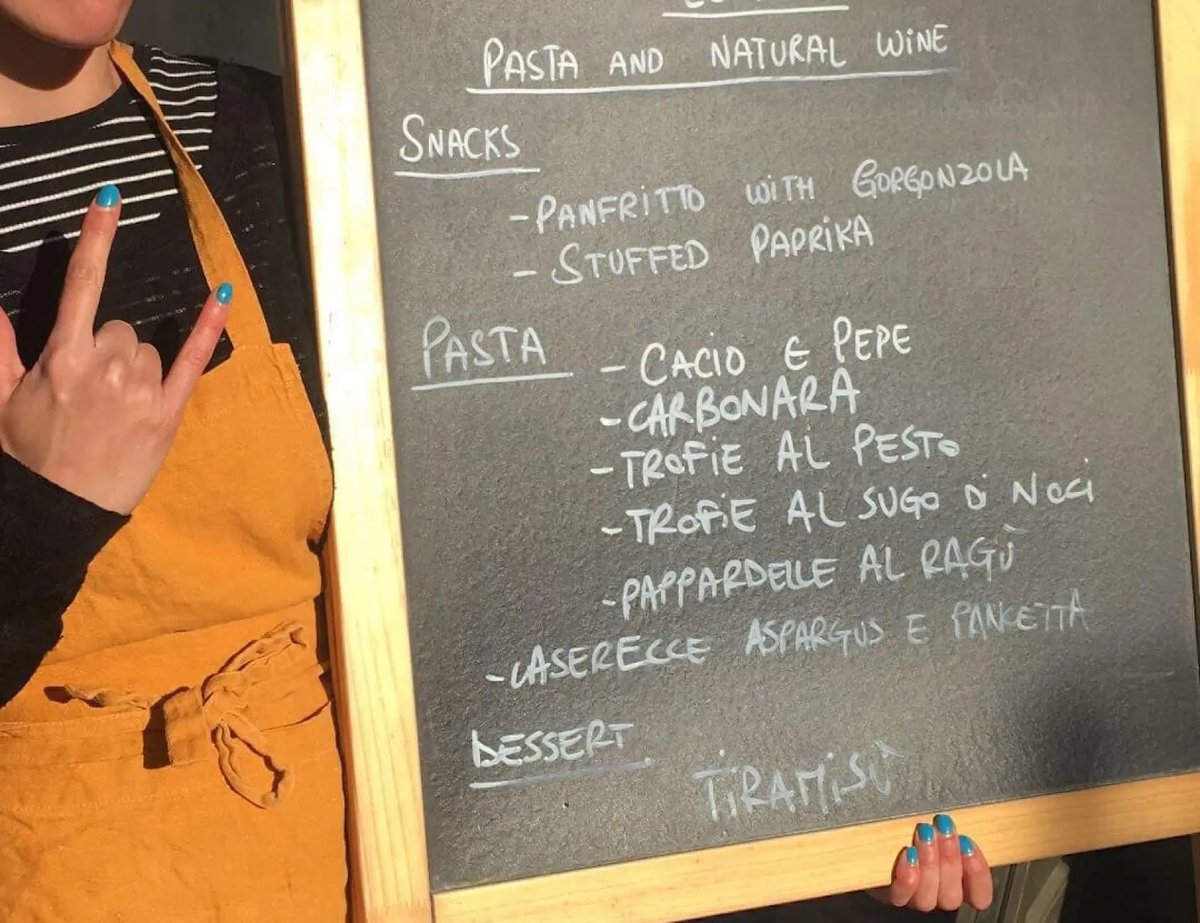 PASTA AND NATURAL WINE
SNACKS
- PANFRITTO WITH GORGONZOLA
- STUFFED PAPRIKA
PASTA - CACIO E PEPE
- CARBONARA
- TROFIE AL PESTO
- TROFIE AL SUGO Di NOCi
- PAPPARDELLE AL RAGÙ
- CASERECCE ASPARGUS E PANCETTA
DESSERT
TiRAMiSÙ